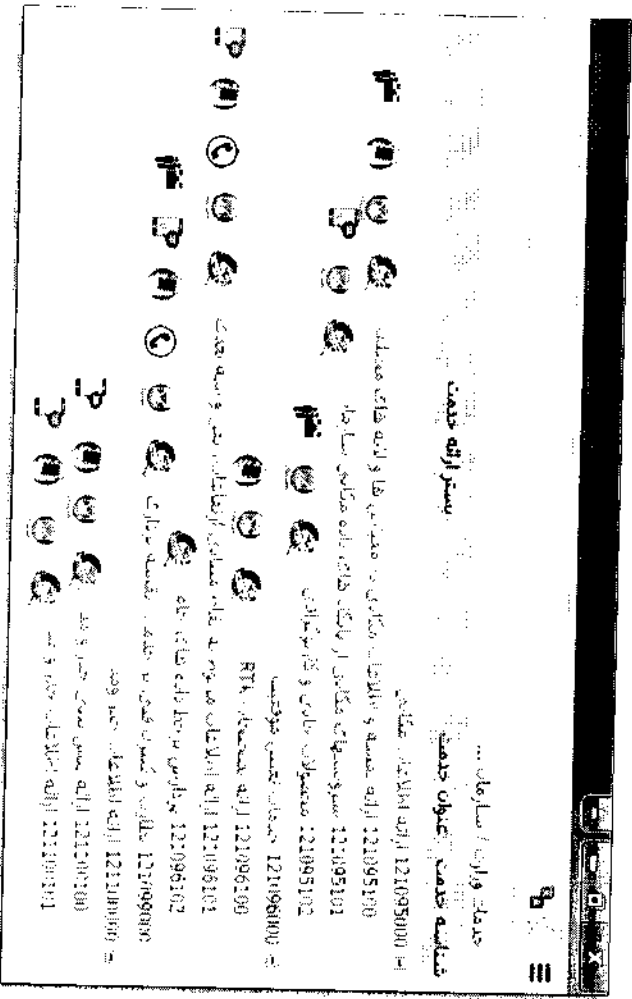 خدمات وزارت / سازمان ...
شناسه خدمت عنوان خدمت بستر ارائه خدمت
121095000 ارائه اطلاعات مکانی
121095100 ارائه نقشه و اطلاعات مکانی در مقیاس ها و لایه های مختلف
121095101 سرویسهای مکانی از بانک های داده مکانی سازمان
121095102 محصولات جانبی و کارتوگرافی
121096000 خدمات تعیین موقعیت
121096100 ارائه تصحیحات RTK
121096101 ارائه اطلاعات مربوط به نقاط شبکه‌های ارتفاعی، ثقلی و سه بعدی
121096102 پردازش برخط داده های خام
121099000 نظارت و کنترل فنی بر خدمات نقشه برداری
121100000 ارائه اطلاعات جزر و مد
121100100 ارائه پیش بینی جزر و مد
121100101 ارائه اطلاعات جزر و مد